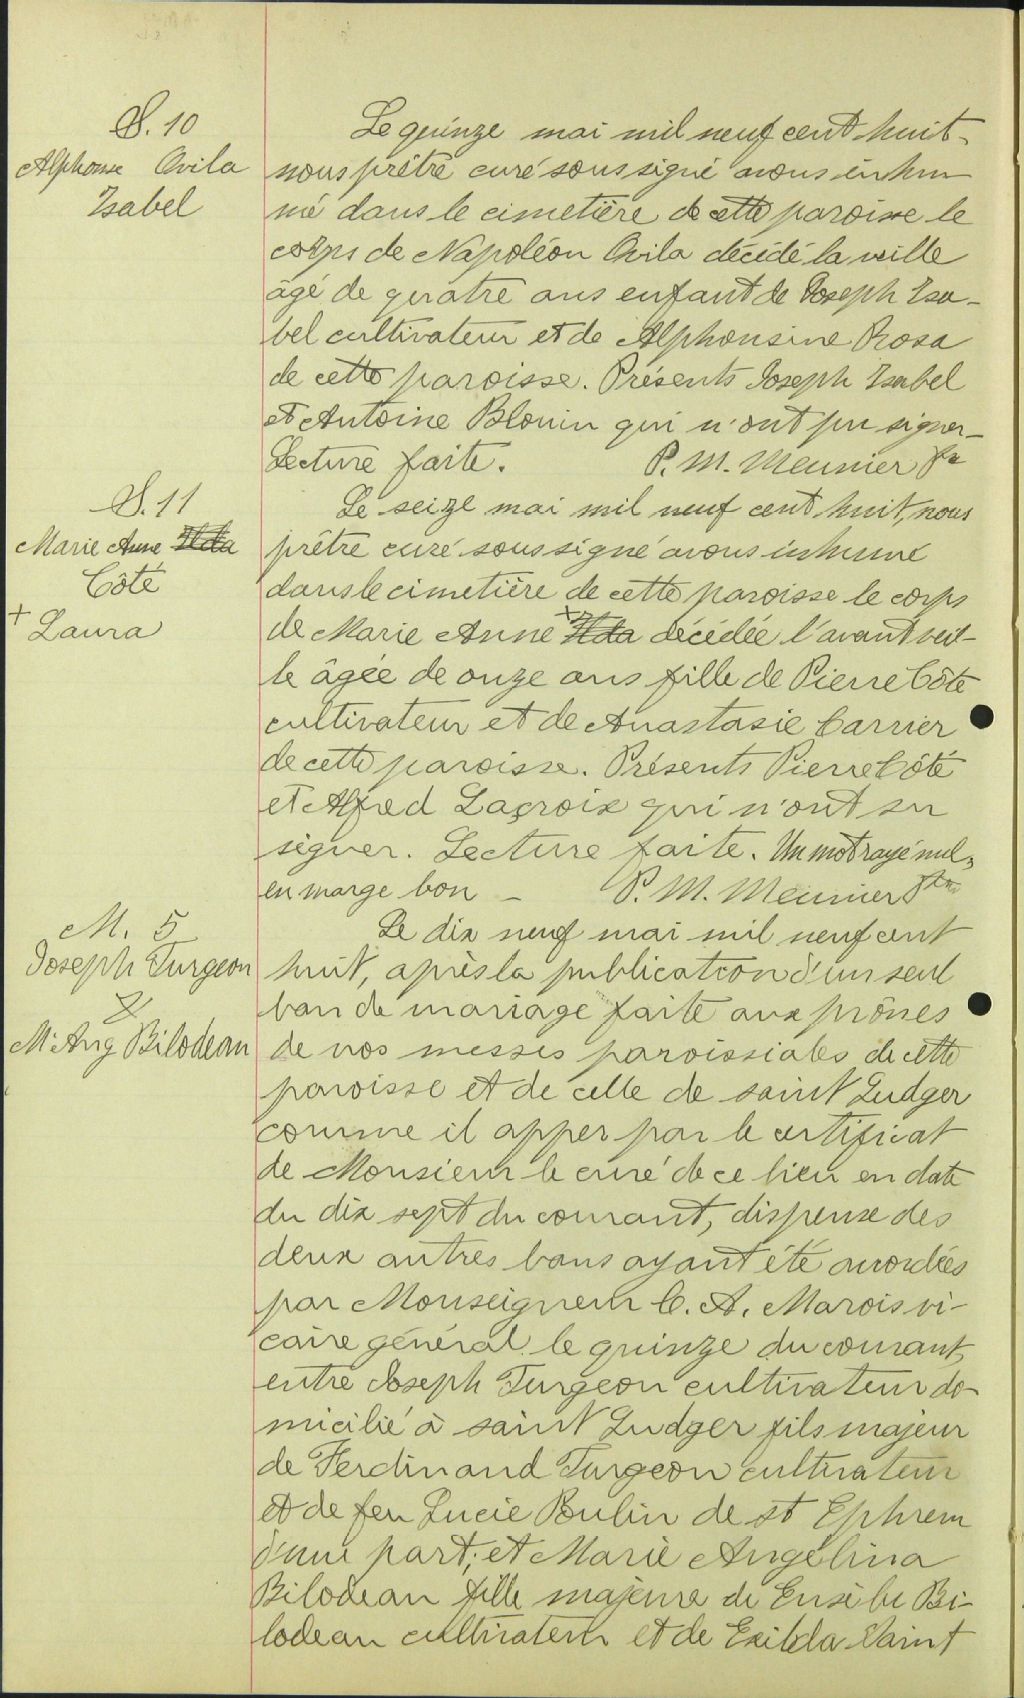 S. 10
Alphonse Avila
Isabel
Le quinze mai mil neuf cent huit,
nous prêtre curé soussigné avons inhu-
mé dans le cimetière de cette paroisse le
corps de Napoléon Avila décédé la veille
âgé de quatre ans enfant de Joseph Isa-
bel cultivateur et de Alphonsine Rosa
de cette paroisse. Présents Joseph Isabel
et Antoine Blouin qui n'ont pu signer-
Lecture faite. P. M. Meunier Ptre
S. 11
Marie Anne Ilda
Côté
+ Laura
Le seize mai mil neuf cent huit, nous
prêtre curé soussigné avons inhumé
dans le cimetière de cette paroisse le corps
de Marie Anne + Ilda décédée l'avant veil-
le âgée de onze ans fille de Pierre Côté
cultivateur et de Anastasie Carrier
de cette paroisse. Présents Pierre Côté
et Alfred Lacroix qui n'ont su
signer. Lecture faite. Un mot rayé nul,
en marge bon - P. M. Meunier Ptre
M. 5
Joseph Turgeon
&
M. Ang Bilodeau
Le dix neuf mai mil neuf cent
huit, après la publication d'un seul
ban de mariage faite aux prônes
de nos messes paroissiales de cette
paroisse et de celle de saint Ludger
comme il apper par le certificat
de Monsieur le curé de ce lieu en date
du dix sept du courant, dispense des
deux autres bans ayant été accordées
par Monseigneur C. A. Marois vi-
caire général le quinze du courant,
entre Joseph Turgeon cultivateur do-
micilié à saint Ludger fils majeur
de Ferdinand Turgeon cultivateur
et de feu Lucie Poulin de st Ephrem
d'une part; et Marie Angélina
Bilodeau fille majeure de Eusèbe Bi-
lodeau cultivateur et de Exilda Saint